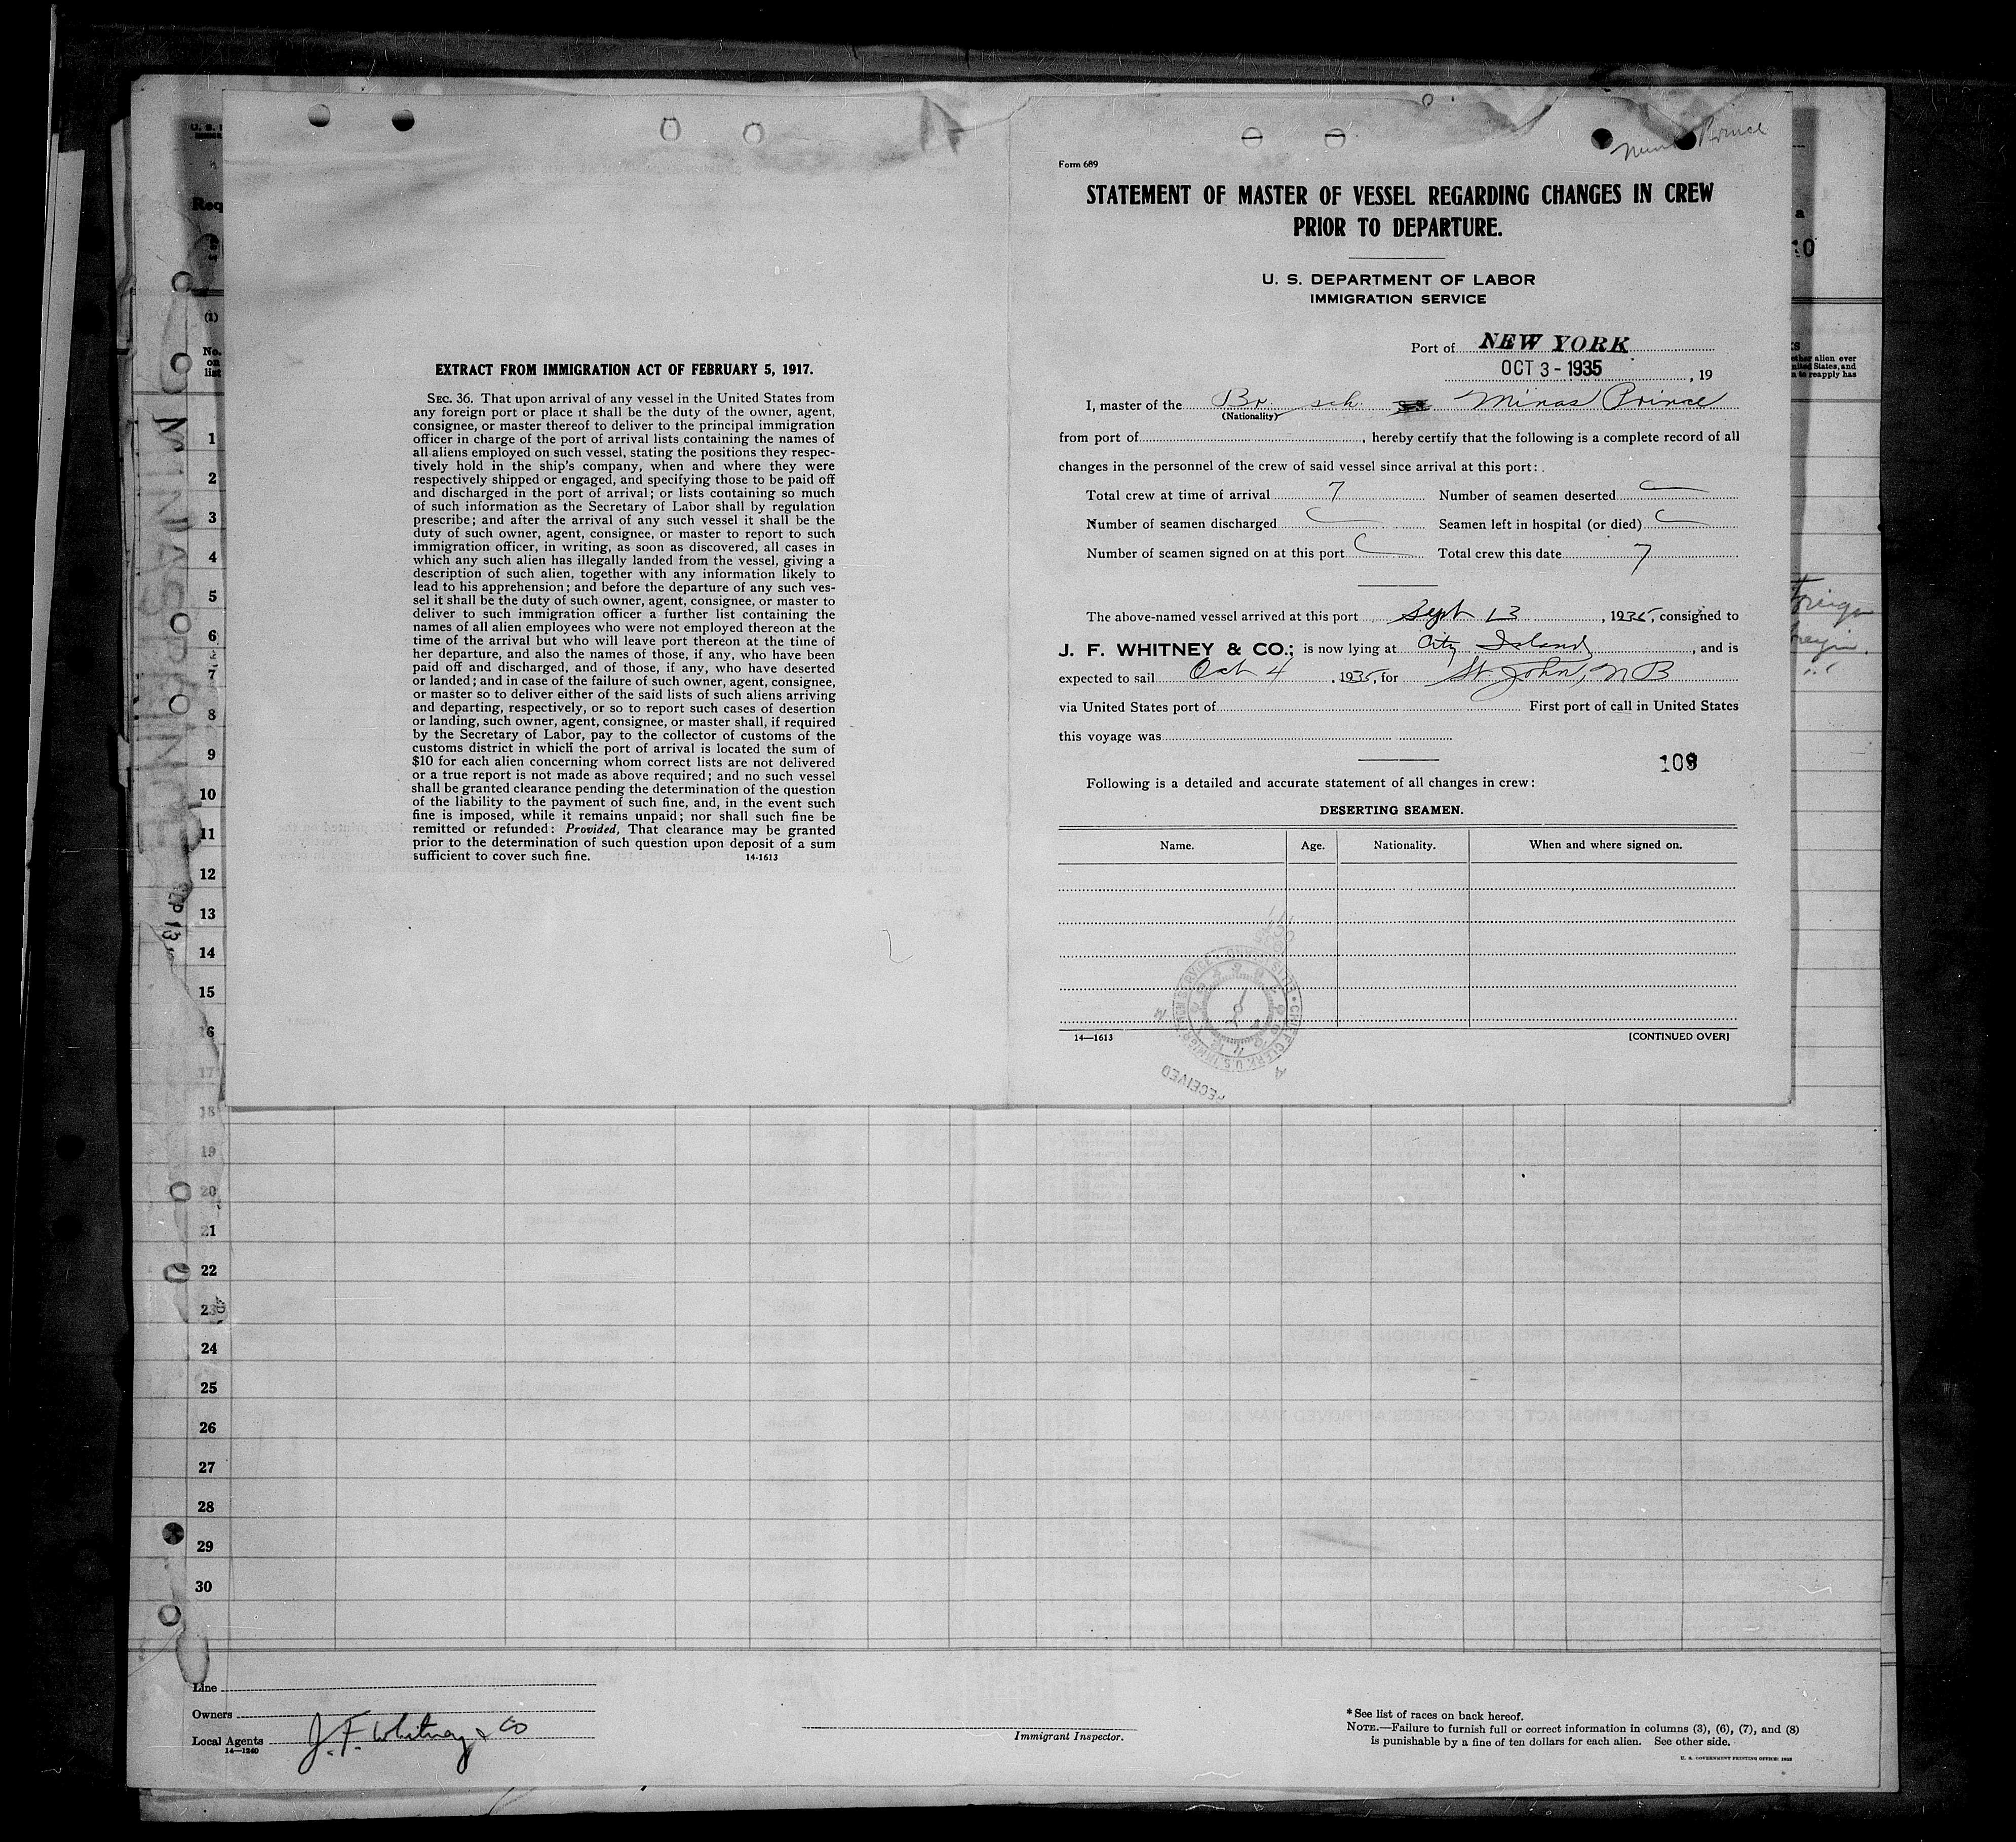 EXTRACT FROM IMMIGRATION ACT OF FEBRUARY 5, 1917.
SEC. 36. That upon arrival of any vessel in the United States from
any foreign port or place it shall be the duty of the owner, agent,
consignee, or master thereof to deliver to the principal immigration
officer in charge of the port of arrival lists containing the names of
all aliens employed on such vessel, stating the positions they respec-
tively hold in the ship's company, when and where they were
respectively shipped or engaged, and specifying those to be paid off
and discharged in the port of arrival; or lists containing so much
of such information as the Secretary of Labor shall by regulation
prescribe; and after the arrival of any such vessel it shall be the
duty of such owner, agent, consignee, or master to report to such
immigration officer, in writing, as soon as discovered, all cases in
which any such alien has illegally landed from the vessel, giving a
description of such alien, together with any information likely to
lead to his apprehension; and before the departure of any such ves-
sel it shall be the duty of such owner, agent, consignee, or master to
deliver to such immigration officer a further list containing the
names of all alien employees who were not employed thereon at the
time of the arrival but who will leave port thereon at the time of
her departure, and also the names of those, if any, who have been
paid off and discharged, and of those, if any, who have deserted
or landed; and in case of the failure of such owner, agent, consignee,
or master so to deliver either of the said lists of such aliens arriving
and departing, respectively, or so to report such cases of desertion
or landing, such owner, agent, consignee, or master shall, if required
by the Secretary of Labor, pay to the collector of customs of the
customs district in which the port of arrival is located the sum of
$10 for each alien concerning whom correct lists are not delivered
or a true report is not made as above required; and no such vessel
shall be granted clearance pending the determination of the question
of the liability to the payment of such fine, and, in the event such
fine is imposed, while it remains unpaid; nor shall such fine be
remitted or refunded: Provided, That clearance may be granted
prior to the determination of such question upon deposit of a sum
sufficient to cover such fine. 14-1613
Prince
Form 689
STATEMENT OF MASTER OF VESSEL REGARDING CHANGES IN CREW
PRIOR TO DEPARTURE.
U. S. DEPARTMENT OF LABOR
IMMIGRATION SERVICE
Port of NEW YORK
OCT 3 - 1935, 19
I, master of the Br. sch. Minas Prince
(Nationality)
from port of, hereby certify that the following is a complete record of all
changes in the personnel of the crew of said vessel since arrival at this port:
Total crew at time of arrival 7 Number of seamen deserted
Number of seamen discharged Seamen left in hospital (or died)
Number of seamen signed on at this port Total crew this date 7
The above-named vessel arrived at this port Sept 13, 1935, consigned to
J. F. WHITNEY & CO.; is now lying at City Island, and is
expected to sail Oct 4, 1935, for St John, N B
via United States port of First port of call in United States
this voyage was
109
Following is a detailed and accurate statement of all changes in crew:
DESERTING SEAMEN.
Name. Age. Nationality. When and where signed on.
14—1613 [CONTINUED OVER]
RECEIVED
MINAS PRINCE
SEP 13
Req
(1)
No.
on
list
1
2
3
4
5
6
7
8
9
10
11
12
13
14
15
16
17
18
19
20
21
22
23
24
25
26
27
28
29
30
Line
Owners
Local Agents J. F. Whitney & Co
14—1240
Immigrant Inspector.
*See list of races on back hereof.
NOTE.—Failure to furnish full or correct information in columns (3), (6), (7), and (8)
is punishable by a fine of ten dollars for each alien. See other side.